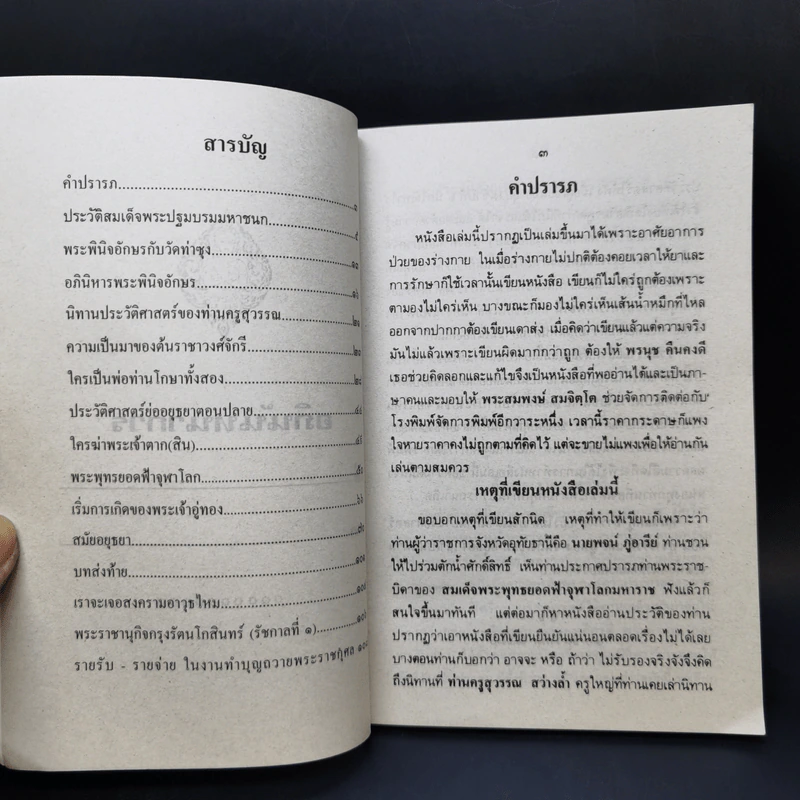 สารบัญ
คำปรารภ
ประวัติสมเด็จพระปฐมบรมมหาชนก
พระพินิจอักษรกับวัดท่าซุง
อภินิหารพระพินิจอักษร
นิทานประวัติศาสตร์ของท่านครูสุวรรณ
ความเป็นมาของต้นราชาวงศ์จักรี
ใครเป็นพ่อท่านโกษาทั้งสอง
ประวัติศาสตร์ย่ออยุธยาตอนปลาย
ใครฆ่าพระเจ้าตาก(สิน)
พระพุทธยอดฟ้าจุฬาโลก
เริ่มการเกิดของพระเจ้าอู่ทอง
สมัยอยุธยา
บทส่งท้าย
เราจะเจอสงครามอาวุธไหม
พระราชานุกิจกรุงรัตนโกสินทร์ (รัชกาลที่ ๑)
รายรับ - รายจ่าย ในงานทำบุญถวายพระราชกุศล
๓
คำปรารภ
หนังสือเล่มนี้ปรากฏเป็นเล่มขึ้นมาได้เพราะอาศัยอาการ
ป่วยของร่างกาย ในเมื่อร่างกายไม่ปกติต้องคอยเวลาให้ยาและ
การรักษาก็ใช้เวลานั้นเขียนหนังสือ เขียนก็ไม่ใคร่ถูกต้องเพราะ
ตามองไม่ใคร่เห็น บางขณะก็มองไม่ใคร่เห็นเส้นน้ำหมึกที่ไหล
ออกจากปากกาต้องเขียนเดาส่ง เมื่อคิดว่าเขียนแล้วแต่ความจริง
มันไม่แล้วเพราะเขียนผิดมากกว่าถูก ต้องให้ พรนุช คืนคงดี
เธอช่วยคัดลอกและแก้ไขจึงเป็นหนังสือที่พออ่านได้และเป็นภา-
ษาคนและมอบให้ พระสมพงษ์ สมจิตฺโต ช่วยจัดการติดต่อกับ
โรงพิมพ์จัดการพิมพ์อีกวาระหนึ่ง เวลานี้ราคากระดาษก็แพง
ใจหายราคาคงไม่ถูกตามที่คิดไว้ แต่จะขายไม่แพงเพื่อให้อ่านกัน
เล่นตามสมควร
เหตุที่เขียนหนังสือเล่มนี้
ขอบอกเหตุที่เขียนสักนิด เหตุที่ทำให้เขียนก็เพราะว่า
ท่านผู้ว่าราชการจังหวัดอุทัยธานีคือ นายพจน์ ภู่อารีย์ ท่านชวน
ให้ไปร่วมตักน้ำศักดิ์สิทธิ์ เห็นท่านประกาศปรารภท่านพระราช-
บิดาของ สมเด็จพระพุทธยอดฟ้าจุฬาโลกมหาราช ฟังแล้วก็
สนใจขึ้นมาทันที แต่ต่อมาก็หาหนังสืออ่านประวัติของท่าน
ปรากฏว่าเอาหนังสือที่เขียนยืนยันแน่นอนตลอดเรื่องไม่ได้เลย
บางตอนท่านก็บอกว่า อาจจะ หรือ ถ้าว่า ไม่รับรองจริงจังจึงคิด
ถึงนิทานที่ ท่านครูสุวรรณ สว่างล้ำ ครูใหญ่ที่ท่านเคยเล่านิทาน